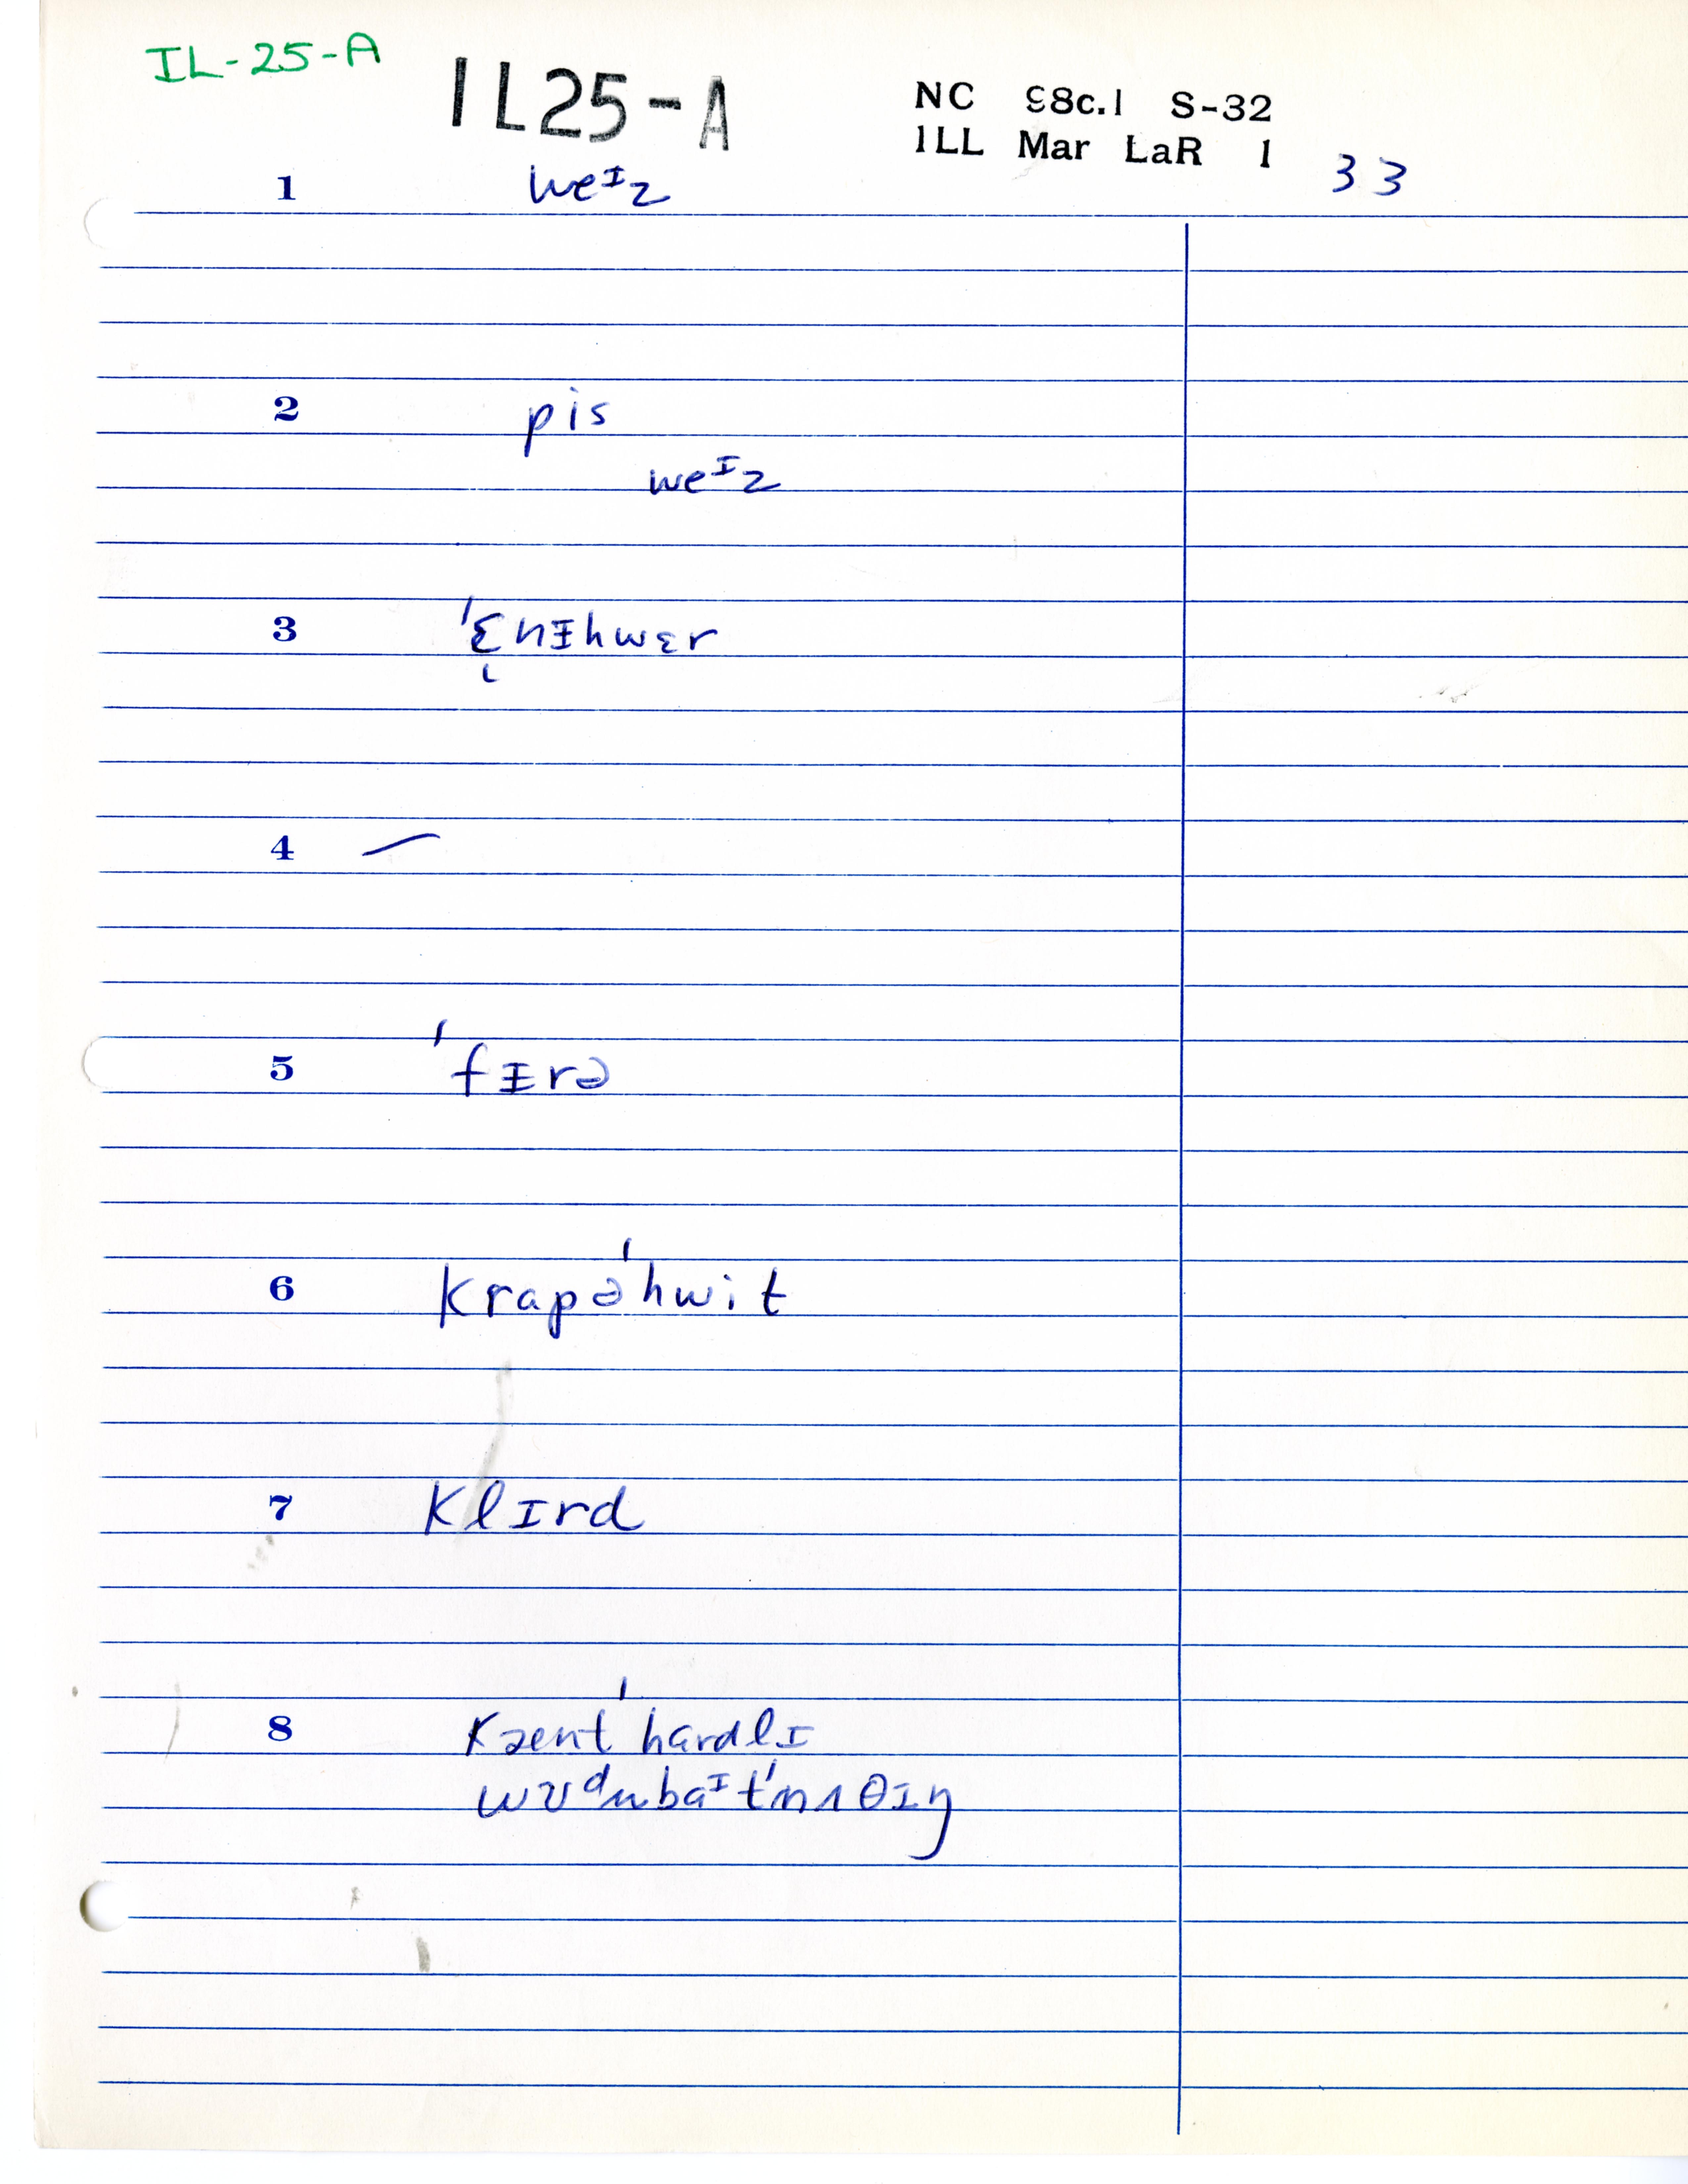 IL-25-A
IL25-A
NC 98c.1 S-32
ILL Mar LaR 1
33
1 weᶦz
2 pis
weᶦz
3 ˈɛ̨nɨhwɛr
4 —
5 ˈfɨrə
6 krapəˈhwit
7 klɪrd
8 kænt ˈhardlɪ
wʊᵈn baᶦt ˈnʌθɪŋ